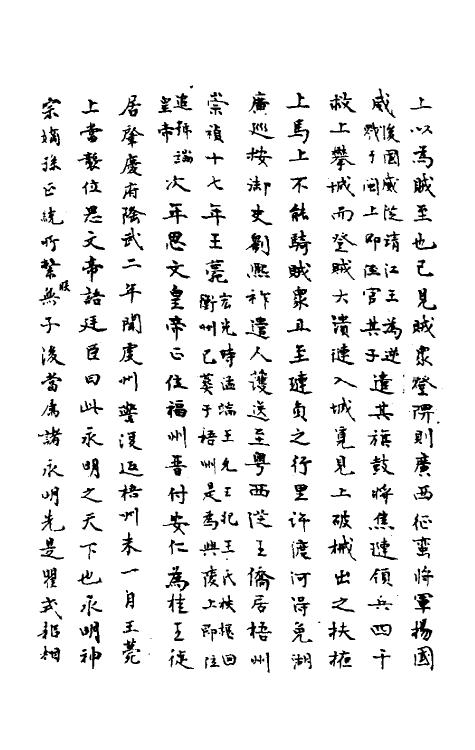 上以為賊至也已見賊眾登陴則廣西征蠻將軍楊國
威後國威從靖江王為逆戮于閩上即位官其子遣其旗鼓將焦璉領兵四千
救上攀城而登賊大潰璉入城覓見上破械出之扶掖
上馬上不能騎賊眾且至璉負之行里許渡河得免湖
廣巡按御史劉熙祚遣人護送至粵西從王僑居梧州
崇禎十七年王薨宏光時謚端王先王王氏扶櫬回衢州已葬于梧州是為興陵上即位
追號端皇帝次年思文皇帝正位福州晉付安仁為桂王徙
居肇慶府隆武二年聞虔州警復返梧州未一月王薨
上當襲位思文帝語廷臣曰此永明之天下也永明神
宗嫡孫正統所繫朕無子後當屬諸永明先是瞿式耜相